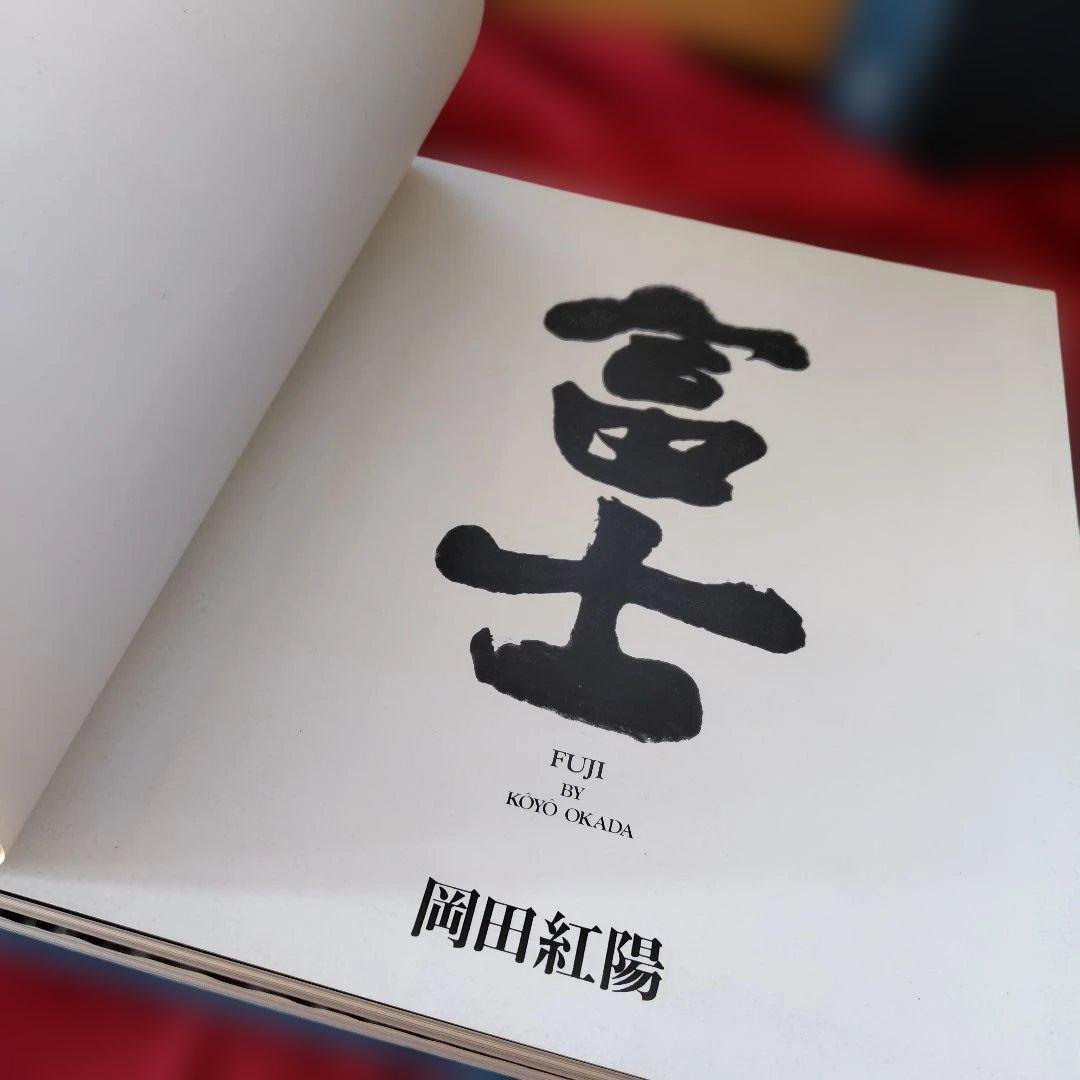 富士
FUJI
BY
KÔYÔ OKADA
岡田紅陽